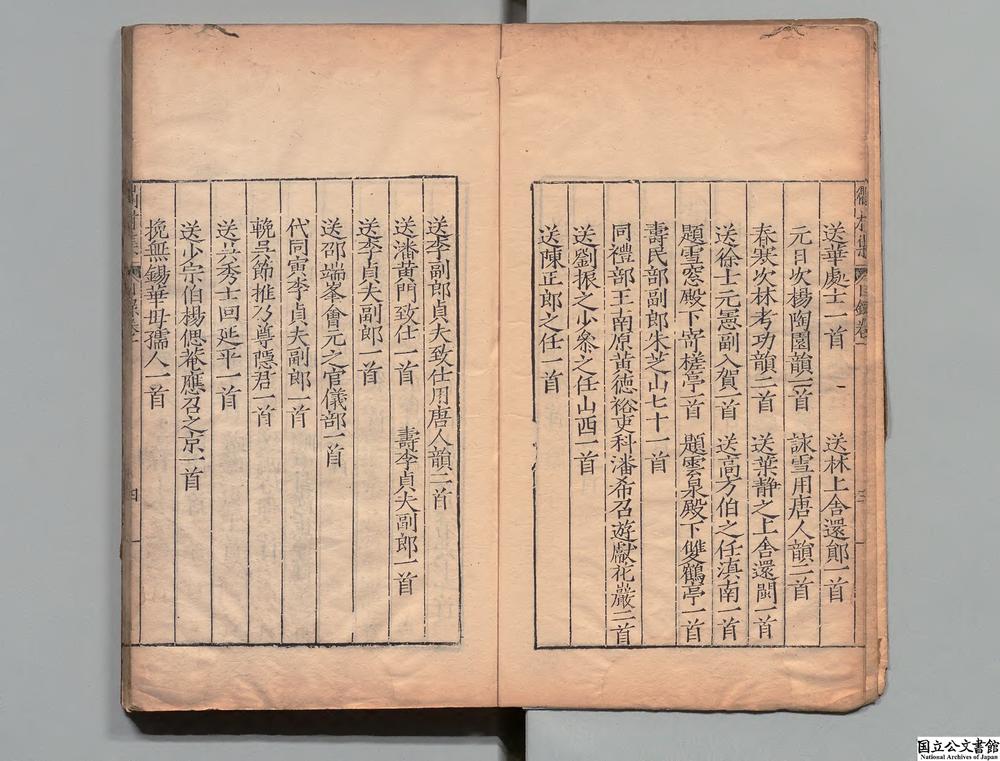 送華處士一首 送林上舍還鄖一首
元日次楊陶園韻二首 詠雪用唐人韻三首
春寒次林考功韻二首 送葉靜之上舍還閩一首
送徐士元憲副入賀一首 送高方伯之任滇南一首
題雪窓殿下寄槎亭一首 題雲泉殿下雙鶴亭一首
壽民部副郎朱芝山七十一首
同禮部王南原黃德裕吏科潘希召遊獻花巖二首
送劉振之少參之任山西一首
送陳正郎之任一首
送李副郎貞夫致仕用唐人韻二首
送潘黃門致仕一首 壽李貞夫副郎一首
送李貞夫副郎一首
送邵端峯會元之官儀部一首
代同寅李貞夫副郎一首
輓吳節推乃尊隱君一首
送吳秀士回延平一首
送少宗伯楊偲菴應召之京一首
挽無錫華母孺人一首
四
国立公文書館
National Archives of Japan